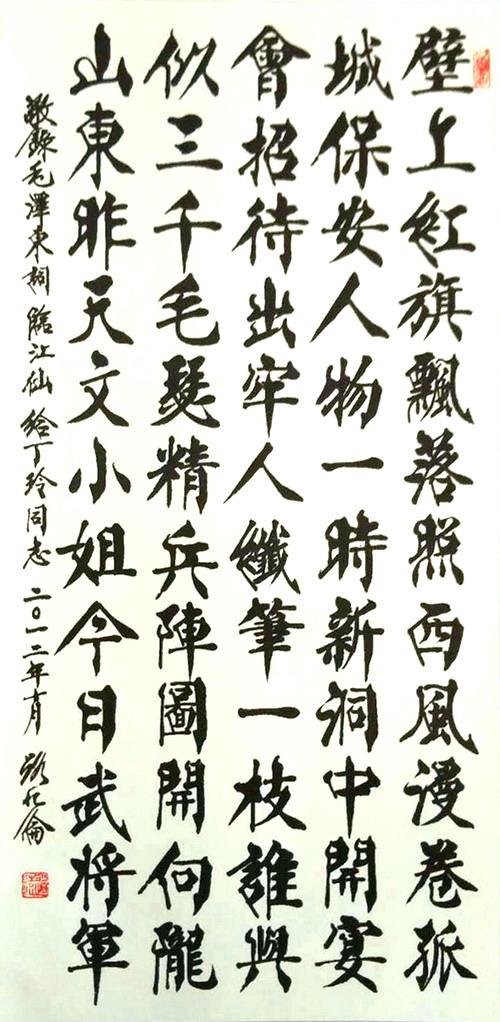 壁上紅旗飄落照西風漫卷孤
城保安人物一時新洞中開宴
會招待出牢人纖筆一枝誰與
似三千毛瑟精兵陣圖開向隴
山東昨天文小姐今日武將軍
敬錄毛澤東詞臨江仙給丁玲同志 二〇一二年十月